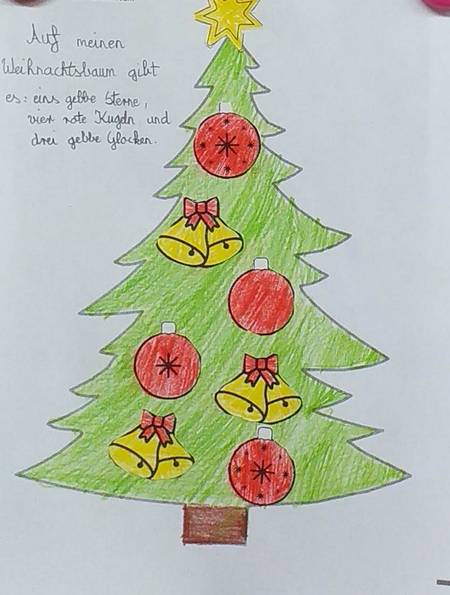 Auf meinen
Weihnachtsbaum gibt
es: eins gelbe Sterne,
vier rote Kugeln und
drei gelbe Glocken.